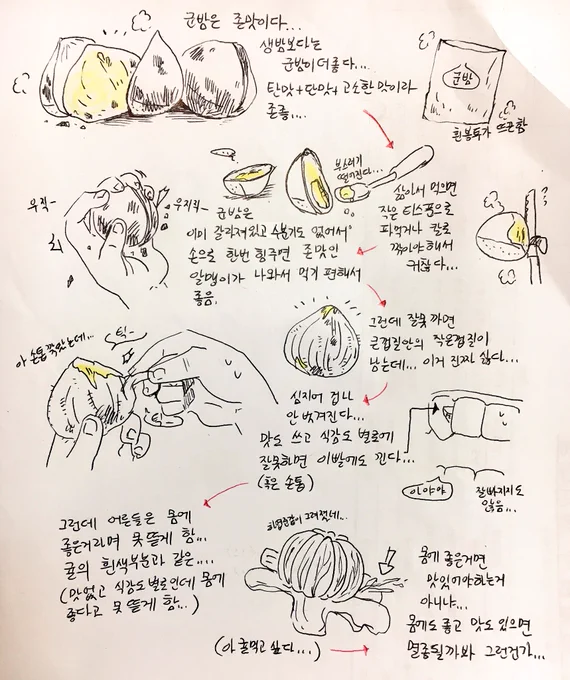 군밤은 존맛이다...
생밤보다는
군밤이 더 좋다...
탄맛+단맛+고소한맛이라
존좋....
군밤
흰봉투가 뜨끈함
우직-
우지직-
군밤은
이미 갈라져있고 수분기도 없어서
손으로 한번 힘주면 존맛인
알맹이가 나와서 먹기 편해서
좋음.
부스러기
떨어진다...
삶아서 먹으면
작은 티스푼으로
파먹거나 칼로
깎아야해서
귀찮다...
그런데 잘못 까면
큰껍질안의 작은껍질이
남는데... 이거 진짜 싫다...
아 손톱 짧았는데...
틱-
심지어 겁나
안 벗겨진다...
맛도 쓰고 식감도 별로에
잘못하면 이빨에도 낀다...
(혹은 손톱)
아야야
잘빠지지도
않음...
그런데 어른들은 몸에
좋은거라며 못 뜯게 함...
귤의 흰색부분과 같은....
(맛없고 식감도 별로인데 몸에
좋다고 못 뜯게 함...)
몸에 좋은거면
맛있어야하는거
아니냐...
몸에도 좋고 맛도 있으면
멸종될까봐 그런건가...
(아 귤먹고 싶다...)